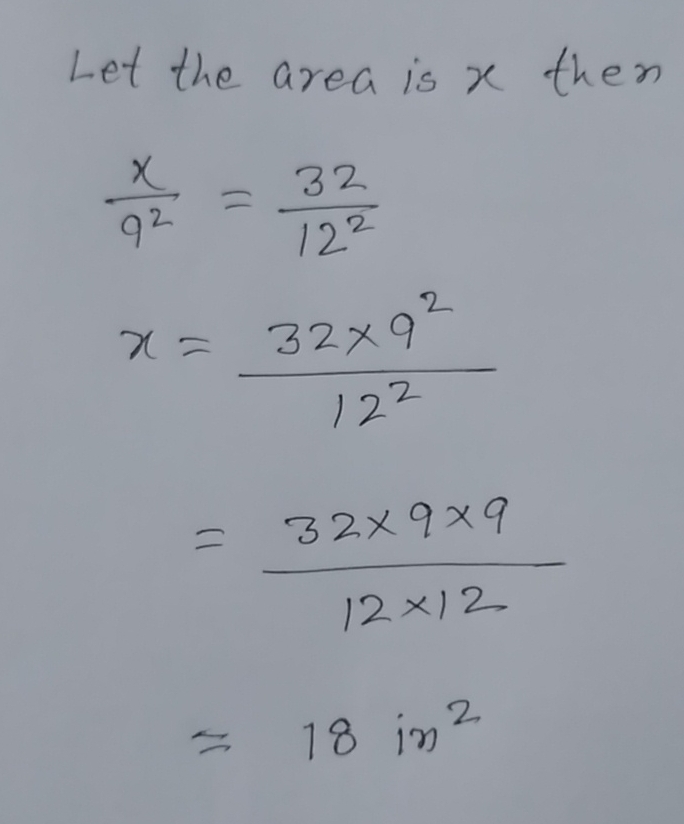 Let the area is x then
x/9² = 32/12²
x = 32×9²/12²
= 32×9×9/12×12
= 18 in²